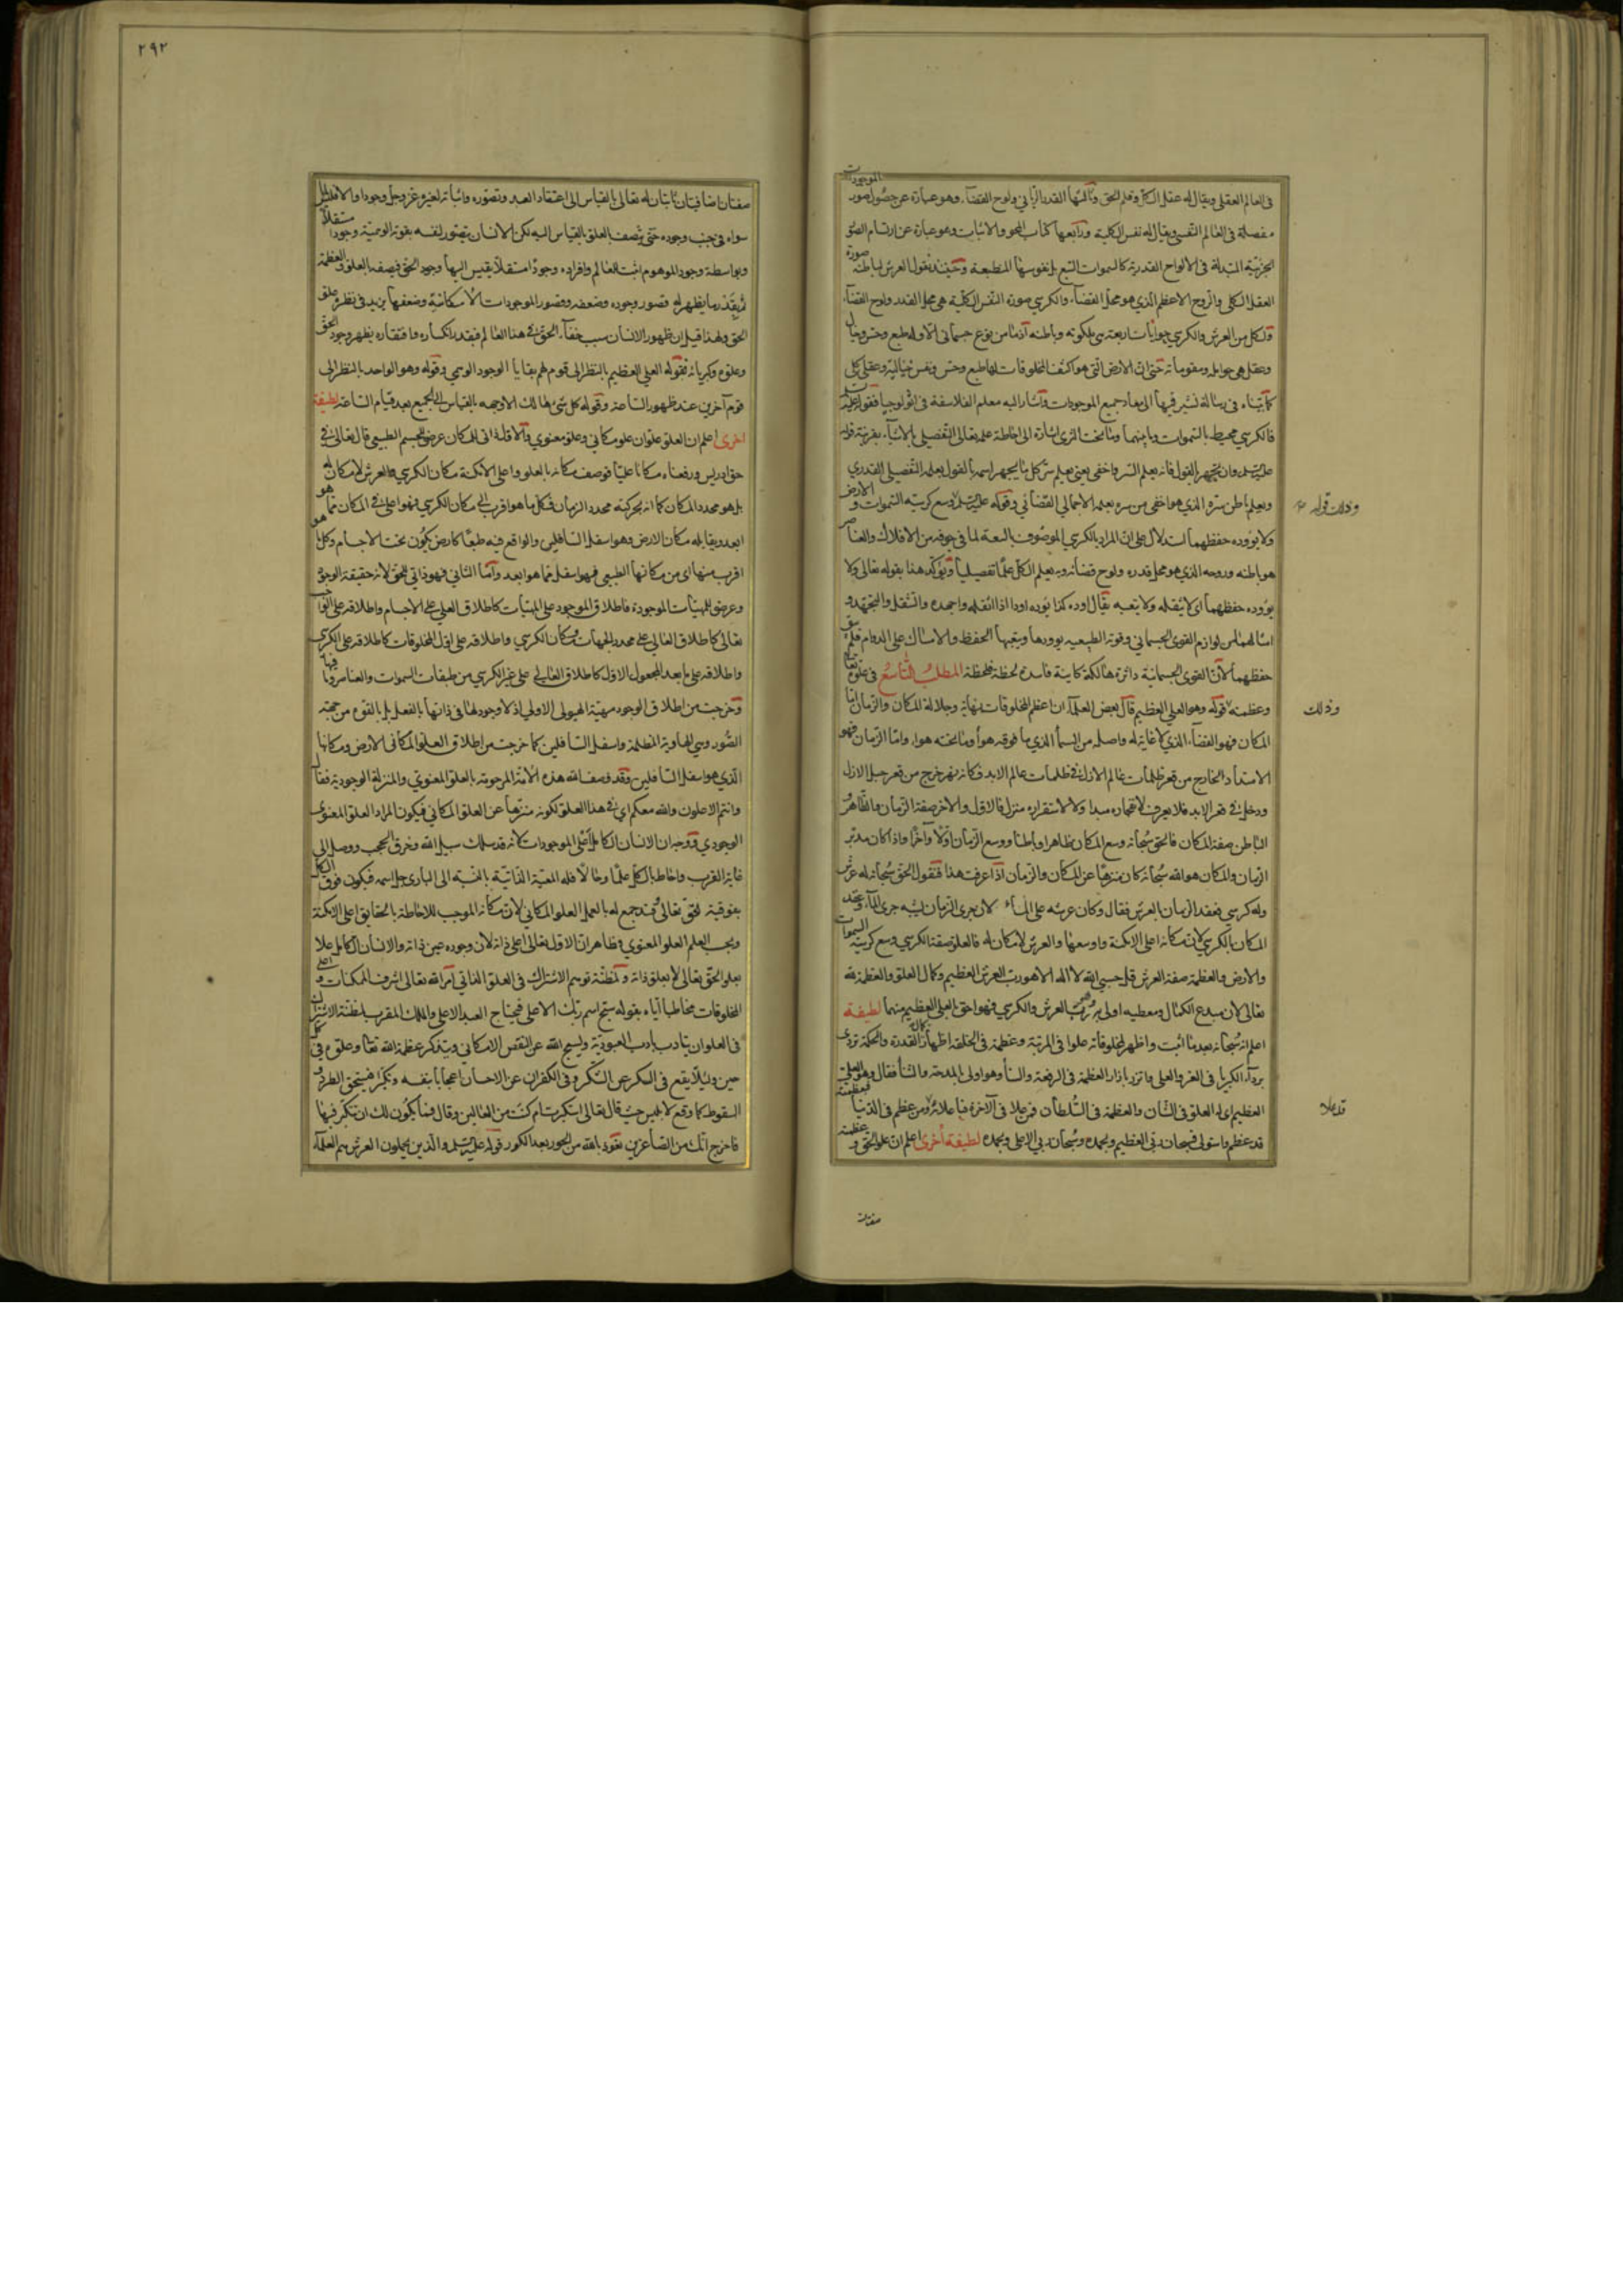 في العالم العقلي ويقال له عقل الكل وقلم الحق وثالثها القدر الرباني ولوح القضاء وهو عبارة عن حصول صور الموجودات
مفصلة في العالم النفسي ويقال له نفس الكلية ورابعها كتاب المحو والاثبات وهو عبارة عن ارتسام الصور
الجزئية المتبدلة في الالواح القدرية كالسموات السبع بل نفوسها المنطبعة وحينئذ نقول العرش لباطنه صورة
العقل الكلي والروح الاعظم الذي هو محل القضاء والكرسي صورة النفس الكلية هي محل القدر ولوح القضاء
ولكل من العرش والكرسي
وعقل هي عوامله ومقوماته حتى ان الارض التي هو اكثف المخلوقات لها طبع وحس ونفس خيالية وعقل كل
كما بيناه في رسالة نشير فيها الى معاد جميع الموجودات واشار اليه معلم الفلاسفة في اثولوجيا فقوله
فالكرسي محيط بالسموات وما بينهما وما تحت الثرى اشارة الى احاطة علمه تعالى التفصيلي بالاشياء بقرينة قوله
وان تجهر بالقول فانه يعلم السر واخفى يعني يعلم سر كل ما يجهر اسمه بالقول بعلمه التفصيلي القدري
ويعلم باطن سره الذي هو اخفى من سره بعلمه الاجمالي القضائي وقوله وسع كرسيه السموات والارض
ولا يؤوده حفظهما استدلال على ان المراد بالكرسي الموصوف بالسعة لما في جوفه من الافلاك والعناصر
هو باطنه وروحه الذي هو محل قدره ولوح قضائه وبه يعلم الكل علما تفصيليا ويؤكد هذا بقوله تعالى ولا
يؤوده حفظهما اي لا يثقله ولا يتعبه يقال اوده كذا يؤوده اودا اذا اثقله واجهده والثقل والجهد و
امثالهما من لوازم القوى الجسماني وقوته الطبيعيه يوودها ويتعبها الحفظ والامساك على الدوام فلم
حفظهما لان القوى الجسمانية داثرة هالكة كاينة فاسدة لحظة فلحظة المطلب التاسع في علوه تعالى
وعظمته قوله وهو العلي العظيم قال بعض العلماء ان اعظم المخلوقات مهابة وجلالة المكان والزمان اما
المكان فهو الفضاء الذي لا غاية له واصله من السماء الذي ما فوقه هواء وما تحته هواء واما الزمان فهو
الامتداد الخارج من قعر ظلمات عالم الازل في ظلمات عالم الابد فكانه نهر خرج من قعر جبل الازل
ودخل في قعر الابد فلا يعرف لانفجاره مبدا ولا لاستقراره منزل فالاول والاخر صفة الزمان والظاهر و
الباطن صفة المكان فالحق سبحانه وسع المكان ظاهرا وباطنا ووسع الزمان اولا وآخرا واذا كان مدبر
الزمان والمكان هو الله سبحانه كان منزها عن المكان والزمان اذا عرفت هذا فنقول الحق سبحانه له عرش
وله كرسي فعقد الزمان بالعرش فقال وكان عرشه على الماء لان جري الزمان يشبه جري الماء وعقد
المكان بالكرسي لان مكانه اعلى الامكنة واوسعها والعرش لا مكان له فالعلو صفة الكرسي وسع كرسيه السموات
والارض والعظمة صفة العرش قل حسبي الله لا اله الا هو رب العرش العظيم وكمال العلو والعظمة لله
تعالى لان مبدع الكمال ومعطيه اولى به وهو رب العرش والكرسي فهو احق بالعلي العظيم منهما لطيفة
اعلم انه سبحانه بعد ما اثبت واظهر لمخلوقاته علوا في المرتبة وعظمة في الخلقة اظهارا لكمال القدرة والحكمة تردى
برداء الكبرياء في العز والعلى واتزر بازار العظمة في الرفعة والسناء وهو اولى بالمدحة والثناء فقال وهو العلي
العظيم اي له العلو في الشان والعظمة في السلطان فمن علا في الآخرة فبإعلائه ومن عظم في الدنيا فبعظمته
قد عظم واستولى فسبحان ربي العظيم وبحمده وسبحان ربي الاعلى وبحمده لطيفة اخرى اعلم ان علو الحق وعظمته
وذلك قوله
وذلك
قد علا
صفتان
٢٩٢
صفتان اضافيتان ثابتان له تعالى بالقياس الى اعتقاد العبد وتصوره واثباته لغيره عز وجل وجودا والا فالكل
سواء في جنب وجوده حتى يتصف العلو بالقياس اليه لكن الانسان يتصور لنفسه بقوته الوهمية وجودا مستقلا
وبواسطة وجود الموهوم اثبت للعالم وافراده وجودا مستقلا يقيس اليها وجود الحق فيصفه بالعلو والعظمة
ثم بقدر ما يظهر له قصور وجوده وضعفه وقصور الموجودات الامكانية وضعفها يزيد في نظره علو
الحق ولهذا قيل ان ظهور الانسان سبب خفاء الحق في هذا العالم فبقدر انكساره وافتقاره يظهر وجود الحق
وعلوه وكبرياؤه فقوله العلي العظيم بالنظر الى قوم لهم بقايا الوجود الوهمي وقوله وهو الواحد بالنظر الى
قوم آخرين عند ظهور الساعة وقوله كل شئ هالك الا وجهه بالقياس الى الجميع بعد قيام الساعة لطيفة
اخرى اعلم ان العلو علوان علو مكاني وعلو معنوي والاول اذ المكان عرض للجسم الطبيعي قال تعالى في
حق ادريس ورفعناه مكانا عليا فوصف مكانه بالعلو واعلى الامكنة مكان الكرسي والعرش لا مكان له
بل هو محدد المكان كما انه بحركته محدد الزمان فكل ما هو اقرب الى مكان الكرسي فهو اعلى في المكان مما هو
ابعد ويقابله مكان الارض وهو اسفل السافلين والواقع فيه طبعا كارض يكون تحت الاجسام وكل ما هو
اقرب منها اي من مكانها الطبيعي فهو اسفل مما هو ابعد واما الثاني فهو ذاتي للحق لانه حقيقة الوجود
وعرضي للمهيات الموجودة فاطلاق الموجود على المهيات كاطلاق العلي على الاجسام واطلاقه على الواجب
تعالى كاطلاق العالي على محدد الجهات ومكان الكرسي واطلاقه على اول المخلوقات كاطلاقه على الكرسي
واطلاقه على ما بعد المجعول الاول كاطلاق العالي على غير الكرسي من طبقات السموات والعناصر وما فيها
وخرجت من اطلاق الوجود مهية الهيولى الاولى اذ لا وجود لها في ذاتها بالفعل بل بالقوة من جهة
الصور وهي الهاوية المظلمة واسفل السافلين كما خرجت من اطلاق العلو المكاني الارض ومكانها
الذي هو اسفل السافلين وقد وصف الله هذه الامة المرحومة بالعلو المعنوي والمنزلة الوجودية فقال
وانتم الاعلون والله معكم اي في هذا العلو لكونه منزها عن العلو المكاني فيكون المراد العلو المعنوي
الوجودي ووجه ان الانسان الكامل اعلى الموجودات لانه قد سلك سبيل الله وخرق الحجب ووصل الى
غاية القرب واحاط بالكل علما وحالا فله المعية الذاتية بالنسبة الى الباري جل اسمه فيكون فوق الكل
بفوقية الحق تعالى فيجمع له بالعمل العلو المكاني لان مكانه الموجب للاحاطة بالحقايق اعلى الامكنة
وبحسب العلم العلو المعنوي وظاهر ان الاول تعالى اعلى ذاته لان وجوده عين ذاته والانسان الكامل علا
بعلو الحق تعالى لا بعلو ذاته ولمظنة توهم الاشتراك في العلو الذاتي امر الله تعالى اشرف الممكنات واعلى
المخلوقات مخاطبا اياه بقوله سبح اسم ربك الاعلى فيحتاج العبد الاعلى والملك المقرب لمظنة الاشتراك
في العلو ان يتادب بادب العبودية وليسبح الله عن النقص الامكاني ويتذكر عظمة الله تعالى وعلوه في كل
حين ولئلا يقع في السكر عن الشكر وفي الكفران عن الاحسان اعجابا بنفسه وتكبرا فيستحق الطرد و
السقوط كما وقع لابليس حيث قال تعالى استكبرت ام كنت من العالين وقال فما يكون لك ان تتكبر فيها
فاخرج انك من الصاغرين نعوذ بالله من الحور بعد الكور قوله والذين يحملون العرش هم العلماء